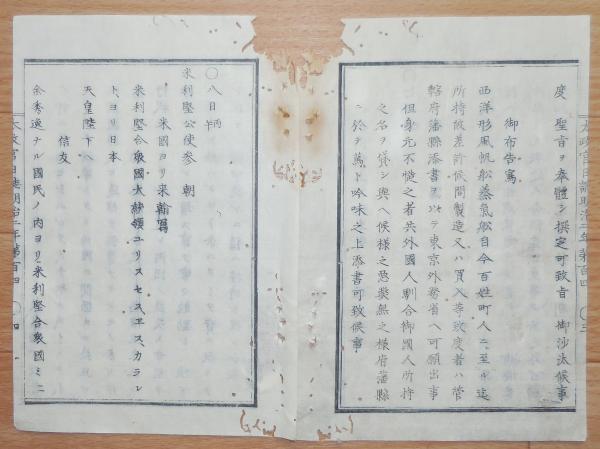 度 聖旨ヲ奉體シ撰定可致旨 御沙汰候事
御布告寫
西洋形風帆船蒸氣船自今百姓町人ニ至ル迄
所持被差許候間製造又ハ買入等致度者ハ管
轄府藩縣添書ヲ以テ東京外務省ヘ可願出事
但身元不慥之者共外國人馴合御國人所持
之名ヲ貸シ與ヘ候樣之惡弊無之樣府藩縣
ニ於テ萬ト吟味之上添書可致候事
太政官日誌明治二年第百四 ○三
○八日 丙午
米利堅公使參 朝
米國ヨリ来翰寫
米利堅合衆國大統領ユリスセス、エス、カラン
ト、ヨリ日本
天皇陛下ヘ
信友
余秀逸ナル國民ノ内ヨリ米利堅合衆國ミニ
太政官日誌明治二年第百四 ○四